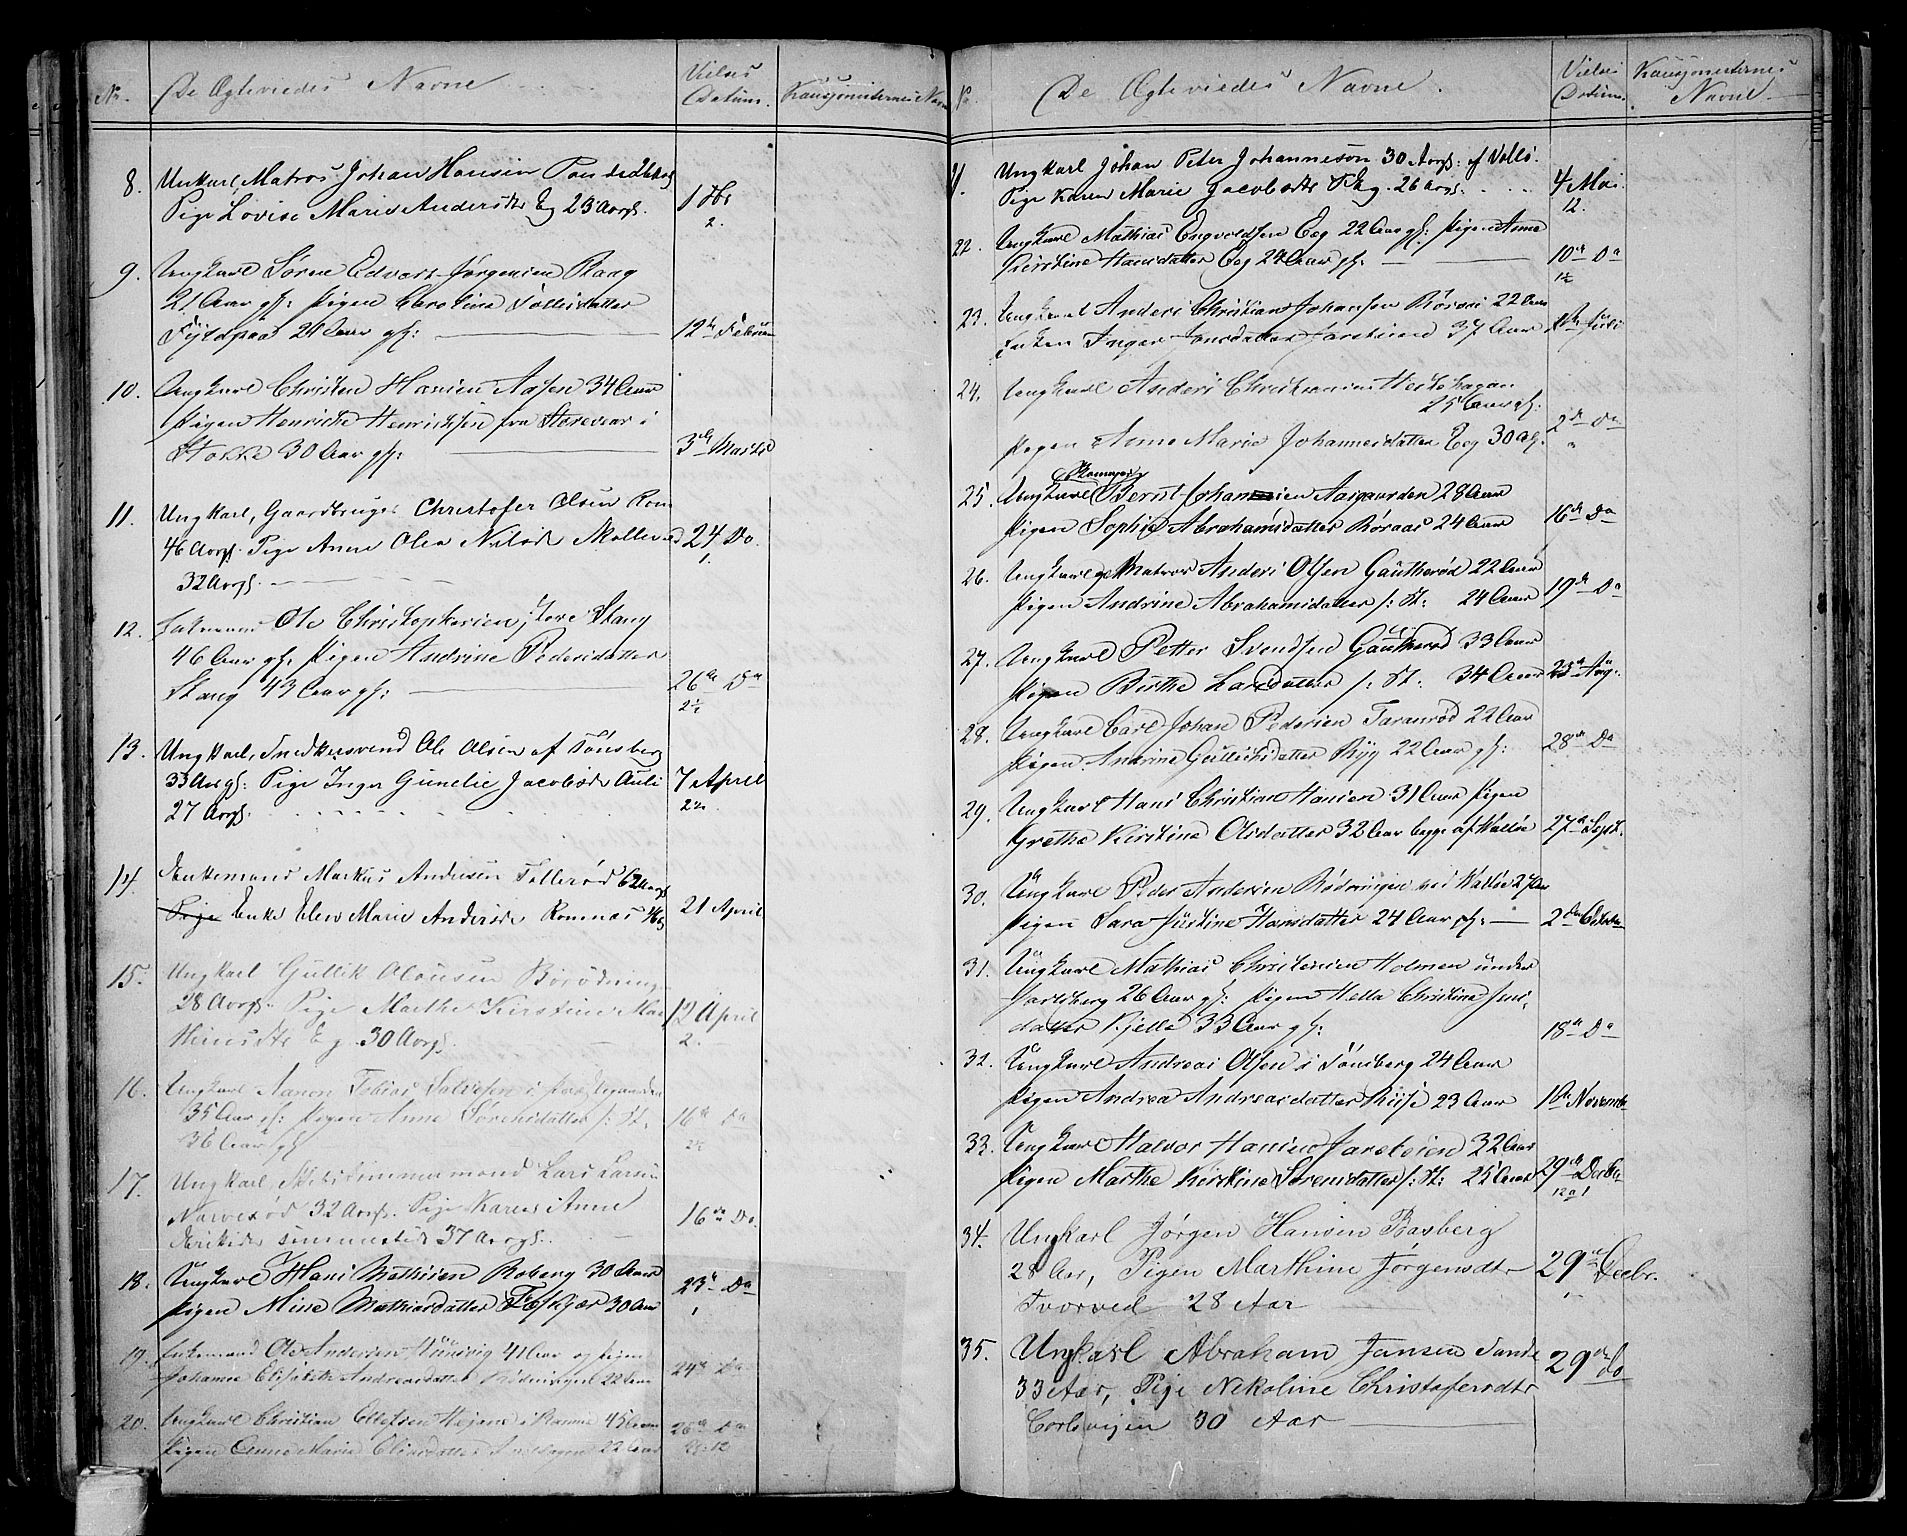 No. De Ægteviedes Navne Vielses Datum. Kausjonisternes Navne
8. Unkarl, Matros Johan Hansen
Pige Lovise Marie Andersdtr Eg 23 Aargl. 1 Fbr
2.
9. Ungkarl Søren Edvart Jørgensen Raag
21 Aar gl: Pigen Caroline Tollesdatter
24 Aar gl: 12te Februar
10. Ungkarl Christen Hansen Aasen 34 Aar
Pigen Henricke Henricksen fra Storevar i
Stokke 30 Aar gl: 3die Marts
11. Ungkarl, Gaardbruger Christofer Olsen Rom
46 Aargl. Pige Anne Olea Nilsdr 24 Do.
32 Aargl. 1.
12. Enkemand Ole Christophersen store Stang
46 Aar gl: Pigen Andrine Pedersdatter
Stang 43 Aar gl: 26de Do
13. Ungkarl, Snedkersvend Ole Olsen af Tønsberg
33 Aargl: Pige Inger Gunelie Jacobsdr Auli 7 April
27 Aargl.
14. Enkemand Markus Andersen Tollerød 62 Aargl
Pige Enke Elen Marie Andersdr Romnæs 21 April
15. Ungkarl Gullik Olausen
28 Aargl. Pige Marthe Kirstine Mat 12 April
hiasdtr Eg. 30 Aargl. 2.
16. Ungkarl Aanon Tobias Salvesen i Præstegaarden
35 Aar gl: Pigen Anne Sørensdatter s: St. 16de Do
36 Aar gl
17. Ungkarl, Skibstømmermand Lars Larsen
Narverød 32 Aargl. Pige Karen Anne
Eriksdr sammesteds 37 Aargl. 16de Do.
18. Ungkarl Hans Mathisen Roberg 30 Aar
Pigen Mine Mathiasdatter 30 Aar 23de Do
1
19. Enkemand Ole Andersen 41 Aar og Pigen
Johanne Elisabeth Andreasdatter 22 Aar 24de Do
20. Ungkarl Christian Ellefsen i Ramnæs 45 Aar
Pigen Anne Maria Eliasdatter 22 Aar 26de Do
No. De Ægteviedes Navne. Vielses Datum. Kausjonisternes Navne
21. Ungkarl Johan Peter Johannesen 30 Aargl: af Valløe.
Pige Karen Marie Jacobsdtr 26 Aargl. 4 Mai
12.
22. Ungkarl Mathias Engvoldsen Eeg 22 Aar gl: Pigen Anne
Kirstine Hansdatter Eeg 24 Aar gl: 10de Do
23. Ungkarl Anders Christian Johansen Røraas 22 Aar
Enken Inger Jonsdatter Jarsteien 37 Aar Juli
24. Ungkarl Anders Christiansen
25 Aar gl:
Pigen Anne Marie Johannesdatter Eeg 30 Ag. 2de Do
25. Ungkarl Bernt Johansen Aasgaarden 28 Aar
Pigen Sophie Abrahamsdatter Røraas 24 Aar 16de Do
26. Ungkarl og Matros Anders Olsen Gautherød 22 Aar
Pigen Andrine Abrahamsdatter s: St: 24 Aar 19de Do
27. Ungkarl Petter Svendsen Gautherød 33 Aar
Pigen Birthe Larsdatter s: St: 34 Aar 23de Aug.
28. Ungkarl Carl Johan Pedersen Taranrød 22 Aar
Pigen Andrine Gullichsdatter Ryg 22 Aar gl: 28de Do
29. Ungkarl Hans Christian Hansen 31 Aar Pigen
Grethe Kirstine Olsdatter 32 Aar begge af Valløe 27de Sept.
30. Ungkarl Peder Andersen Rødningen ved Valløe 27 Aar
Pigen Sara Justine Hansdatter 24 Aar gl: 2den October
31. Ungkarl Mathias Christensen Holmen under
Jarlsberg 26 Aar gl: Pigen Helle Christine Jens
datter Kjelle 33 Aar gl: 18de Do
32. Ungkarl Andreas Olsen i Tønsberg 24 Aar
Pigen Andrea Andreasdatter Riise 23 Aar 1ste Novemb
33. Ungkarl Halvor Hansen Jarsteien 32 Aar
Pigen Marthe Kirstine Sørensdatter s: St: 25 Aar 29de Decbr
34. Ungkarl Jørgen Hansen Basberg
28 Aar, Pigen Marthine Jørgensdtr 29de Decbr.
Tvorved 28 Aar
35. Ungkarl Abraham Jansen Sande
33 Aar, Pige Nikoline Christofersdtr 29de Do
30 Aar